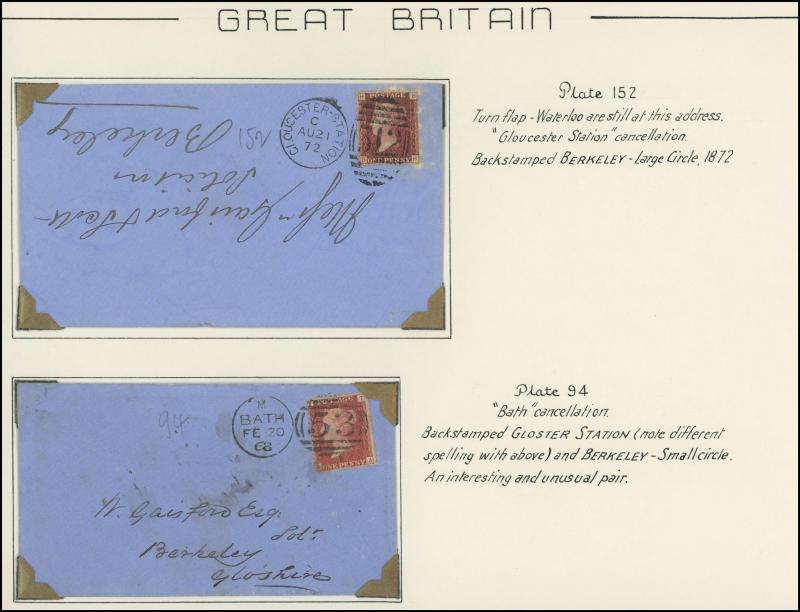 GREAT BRITAIN
Plate 152
Turn flap - Waterloo are still at this address.
"Gloucester Station" cancellation.
Backstamped BERKELEY - Large Circle, 1872
GLOUCESTER-STATION
C
AU 21
72
POSTAGE
ONE PENNY
152
Messrs Gaisford & Scott
Solicitors
Berkeley
Plate 94
"Bath" cancellation.
Backstamped GLOSTER STATION (note different
spelling with above) and BERKELEY - Small circle.
An interesting and unusual pair.
94
M
BATH
FE 20
68
53
ONE PENNY
W. Gaisford Esq.
Solr
Berkeley
Gloshire